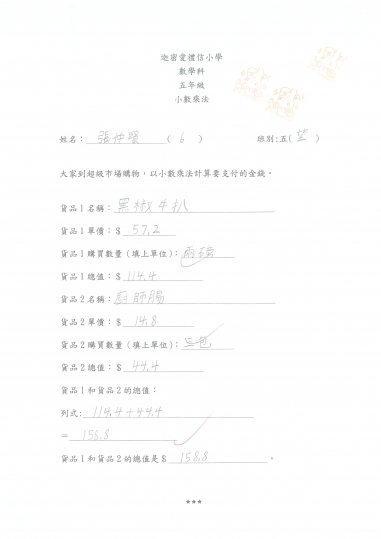 迦密愛禮信小學
數學科
五年級
小數乘法
姓名： 張仲賢 ( 6 ) 班別:五( 望 )
大家到超級市場購物，以小數乘法計算要支付的金錢。
貨品1名稱：黑椒牛扒
貨品1單價：$ 57.2
貨品1購買數量 (填上單位)：兩磅
貨品1總值：$ 114.4
貨品2名稱：廚師腸
貨品2單價：$ 14.8
貨品2購買數量 (填上單位)：三包
貨品2總值：$ 44.4
貨品1和貨品2的總值：
列式: 114.4+44.4
= 158.8
貨品1和貨品2的總值是$ 158.8 。
***